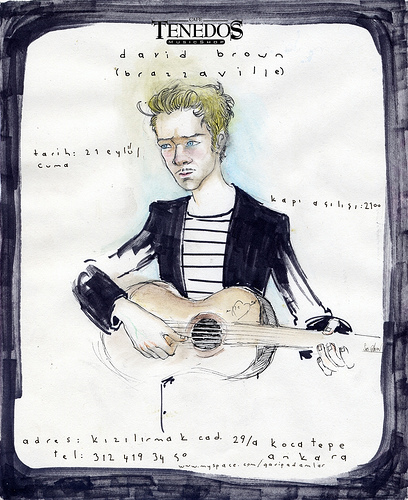 CAFE
TENEDOS
MUSICSHOP
david brown
(brazzaville)
tarih: 21 eylül
cuma
kapı açılışı: 2100
adres: kızılırmak cad. 29/a kocatepe
tel: 312 419 34 50 ankara
www.myspace.com/garipadamlar